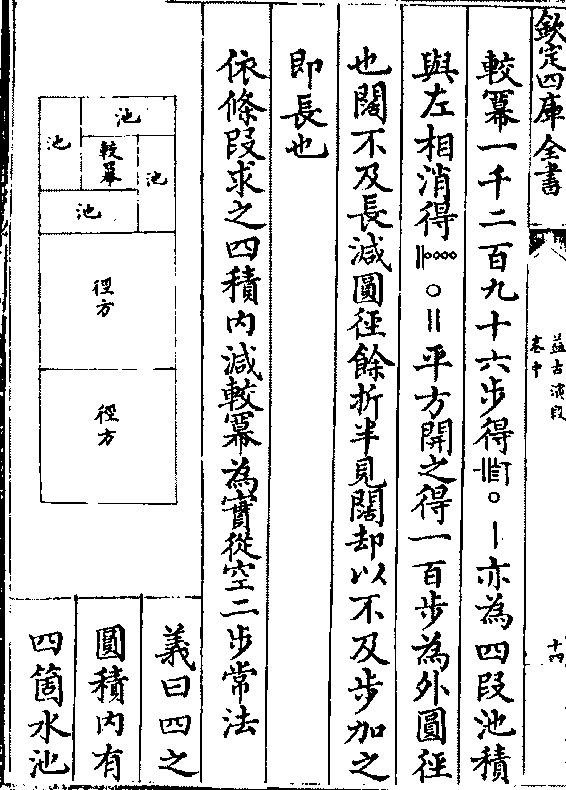 欽定四庫全書
益古演段
卷中
十四
較冪一千二百九十六步得〇〡亦為四段池積
與左相消得〇〢平方開之得一百步為外圓徑
也闊不及長減圓徑餘折半見闊却以不及步加之
即長也
依條段求之四積內減較冪為實從空二步常法
池
池
較冪
池
池
徑方
徑方
義曰四之
圓積內有
四箇水池